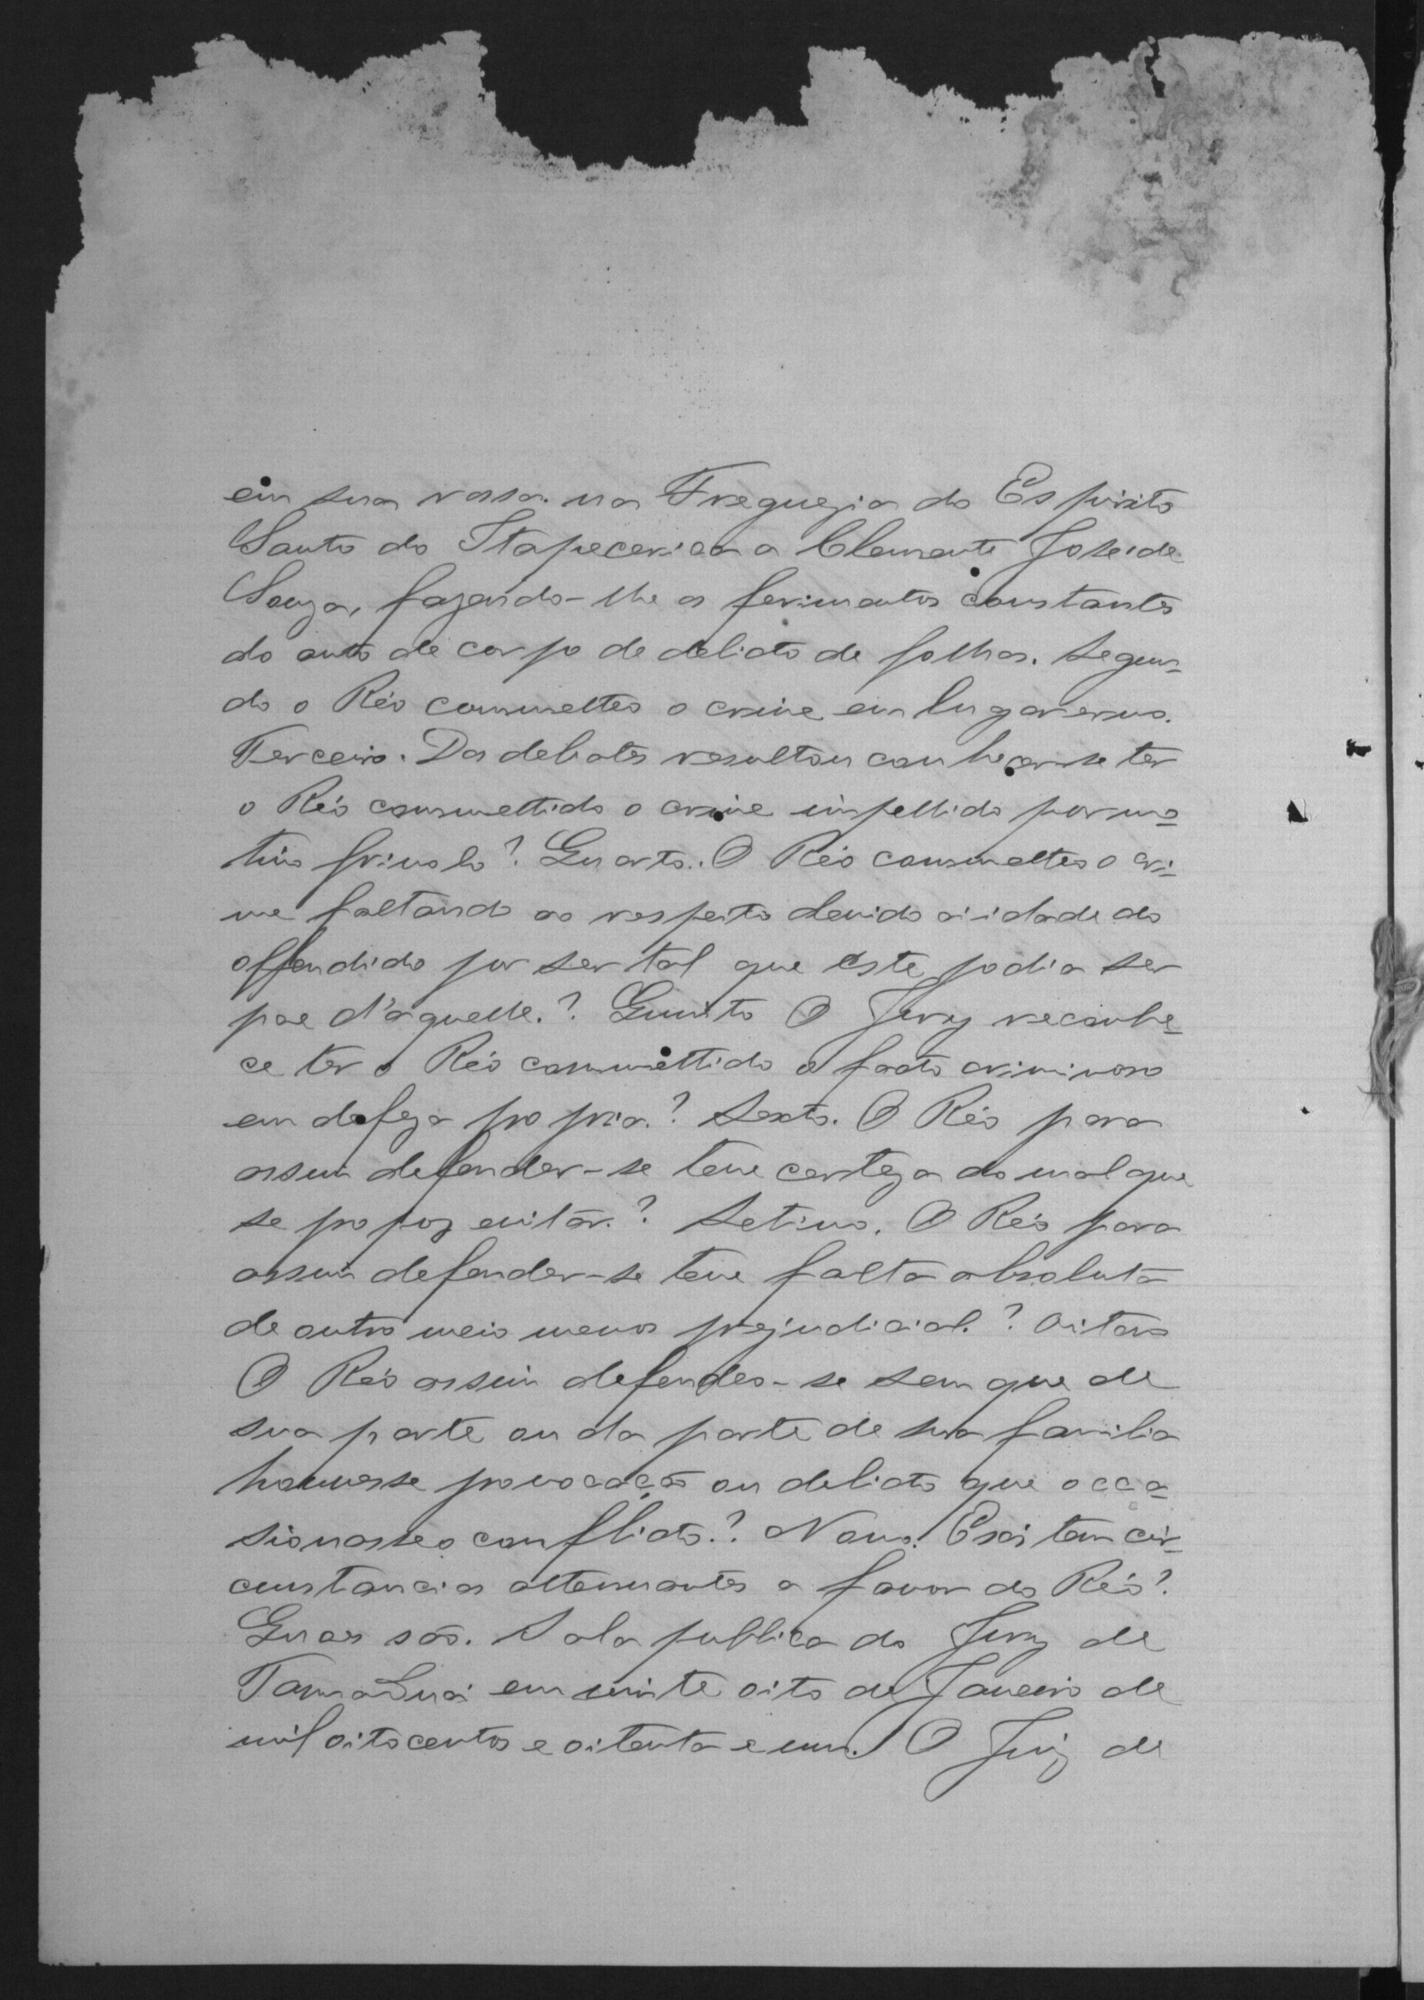 em sua rossa. na Freguezia do Espirito
Santo do Itapecerica a Clemente José de
Souza, fazendo-lhe os ferimentos constantes
do auto de corpo de delicto de folhas. Segun-
do o Réo commetteo o crime em lugar ermo.
Terceiro. Dos debates resultou conhecer-se ter
o Réo commettido o crime impellido por mo-
tivo frivolo? Quarto. O Réo commetteo o cri-
me faltando ao respeito devido a idade do
offendido por ser tal que este podia ser
pae d'aquelle.? Quinto O Jury reconhe-
ce ter o Réo commettido o facto criminoso
em defeza propria? Sexto. O Réo para
assim defender-se teve certeza do mal que
se propoz evitar.? Setimo. O Réo para
assim defender-se teve falta absoluta
de outro meio menos prejudicial.? Oitavo
O Réo assim defendeo-se sem que de
sua parte ou da parte de sua familia
houvesse provocação ou delicto que occa-
sionasse o conflicto.? Nono. Existem cir-
cunstancias attenuantes a favor do Réo?
Quaes são. Sala publica do Jury de
Tamanduá em vinte oito de Janeiro de
mil oitocentos e oitenta e um. O Juiz de